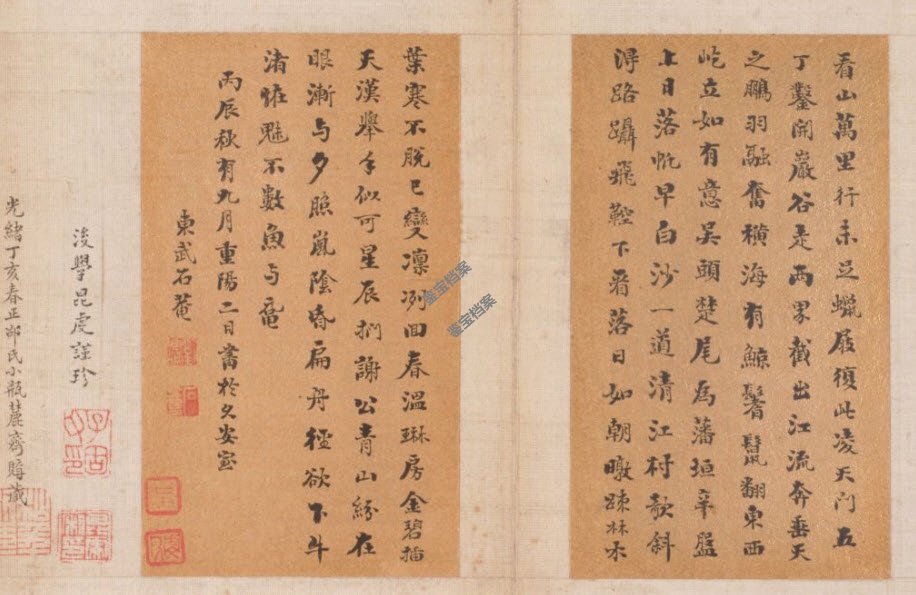 看山萬里行未足蠟屐復此凌天門五
丁鑿開巖谷走兩界截出江流奔垂天
之鵬羽融奮橫海有鯨鬐鬣翻東西
屹立如有意吳頭楚尾爲藩垣盤
上日落帆早白沙一道清江村斜
得路躡飛鞚下看落日如朝暾疎林木
葉寒不脫已變凜冽回春溫琳房金碧插
天漢舉手似可星辰捫謝公青山紛在
眼漸与夕照嵐陰昏扁舟徑欲下牛
渚怪魅不數魚与黿
丙辰秋有九月重陽二日書於久安室
東武石菴
後學昆虎謹珍
光緒丁亥春正邵氏小瓶麓齋購藏
鉴宝档案
鉴宝档案